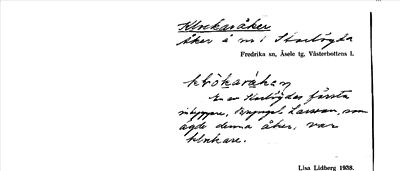 Klockaråker
Åker å n:r 1 Storlögda
Fredrika sn, Åsele tg, Västerbottens l.
klȯ̀karákan
En av Storlögdas första
inbyggare, Larsson, som
ägde denna åker, var
klockare.
Lisa Lidberg 1938.